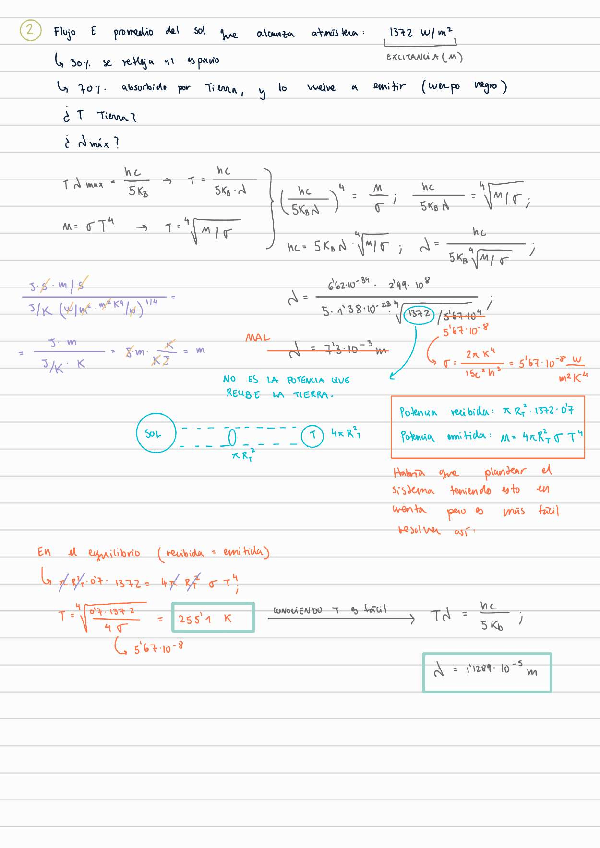 2 Flujo E promedio del sol que alcanza atmósfera: 1372 W/m²
EXCITANCIA (M)
↳ 30% se refleja al espacio
↳ 70% absorbido por Tierra, y lo vuelve a emitir (cuerpo negro)
¿ T Tierra?
¿ λ máx?
T λ max = hc / 5K_B → T = hc / 5K_B · λ
M = σ T⁴ → T = ⁴√(M/σ)
(hc / 5K_B λ)⁴ = M / σ ; hc / 5K_B λ = ⁴√(M/σ)
hc = 5K_B λ · ⁴√(M/σ) ; λ = hc / 5K_B ⁴√(M/σ) ;
J·s·m/s / J/K (W/m² · m²K⁴/W)^1/4 =
= J·m / J/K · K = J·m · K / KJ = m
λ = 6'62·10⁻³⁴ · 2'99·10⁸ / 5·1'38·10⁻²³ ⁴√(1372 / 5'67·10⁴) ;
5'67·10⁻⁸
MAL λ = 7'3·10⁻³ m
σ = 2πK⁴ / 15c²h³ = 5'67·10⁻⁸ W / m²K⁴
NO ES LA POTENCIA QUE
RECIBE LA TIERRA.
SOL T 4πR²_T
πR_T²
Potencia recibida: πR_T²·1372·0'7
Potencia emitida: M = 4πR_T² σ T⁴
Habría que plantear el
sistema teniendo esto en
cuenta pero es más fácil
resolver así:
En el equilibrio (recibida = emitida)
↳ πR_T²·0'7·1372 = 4πR_T² σ T⁴;
T = ⁴√(0'7·1372 / 4σ) = 255'1 K
↳ 5'67·10⁻⁸
CONOCIENDO T es fácil → Tλ = hc / 5K_b ;
λ = 1'1289·10⁻⁵ m